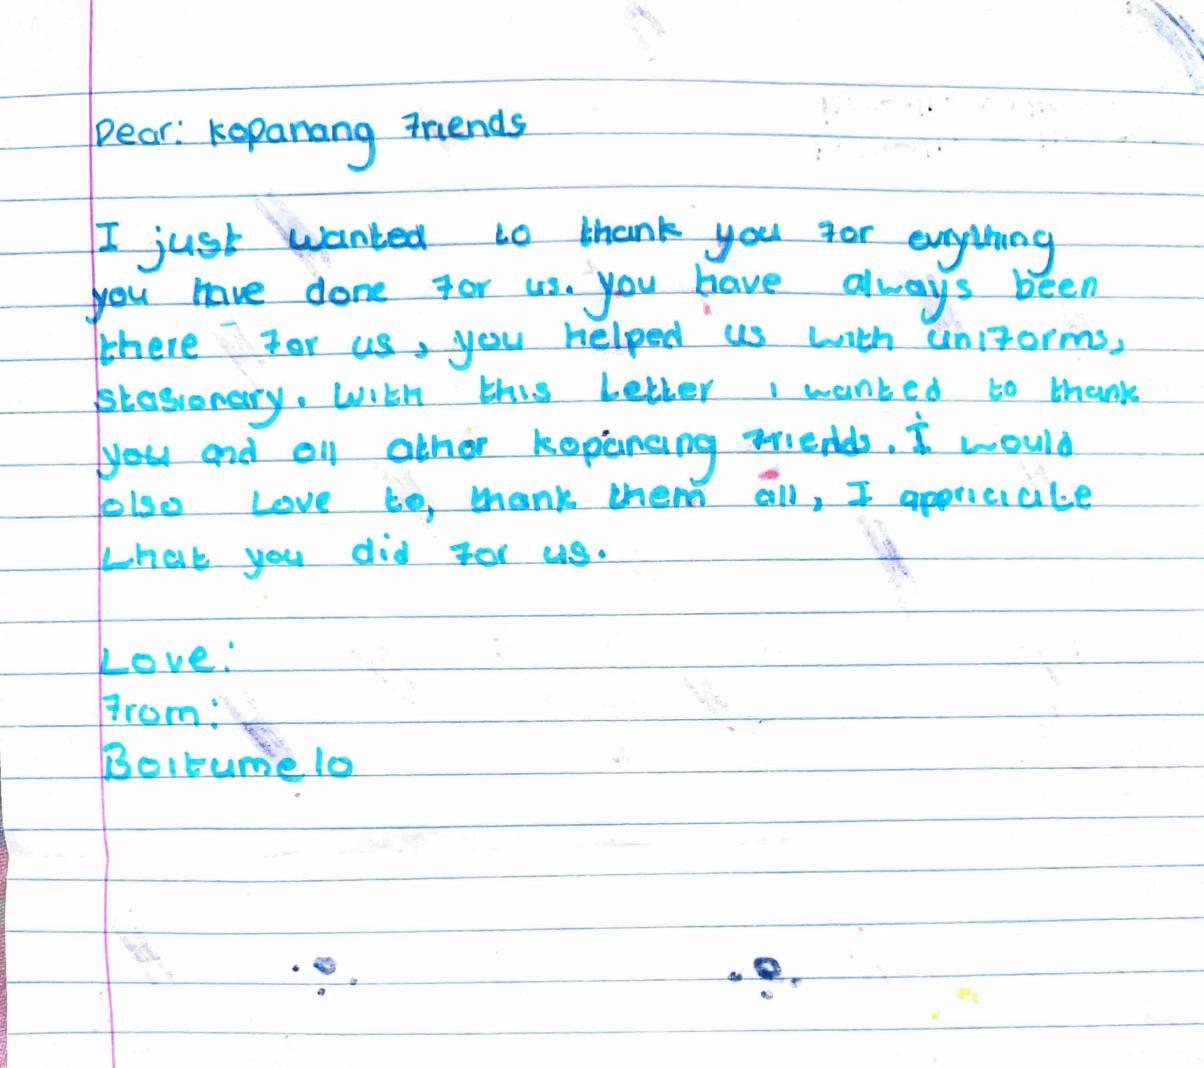 Dear: Kopanang Friends
I just wanted to thank you for evrything
you have done for us. you have always been
there for us, you helped us with uniforms,
stasionary. With this Letter i wanted to thank
you and all other kopanang friends. I would
also Love to, thank them all, I appriciate
what you did for us.
Love:
From:
Boitumelo